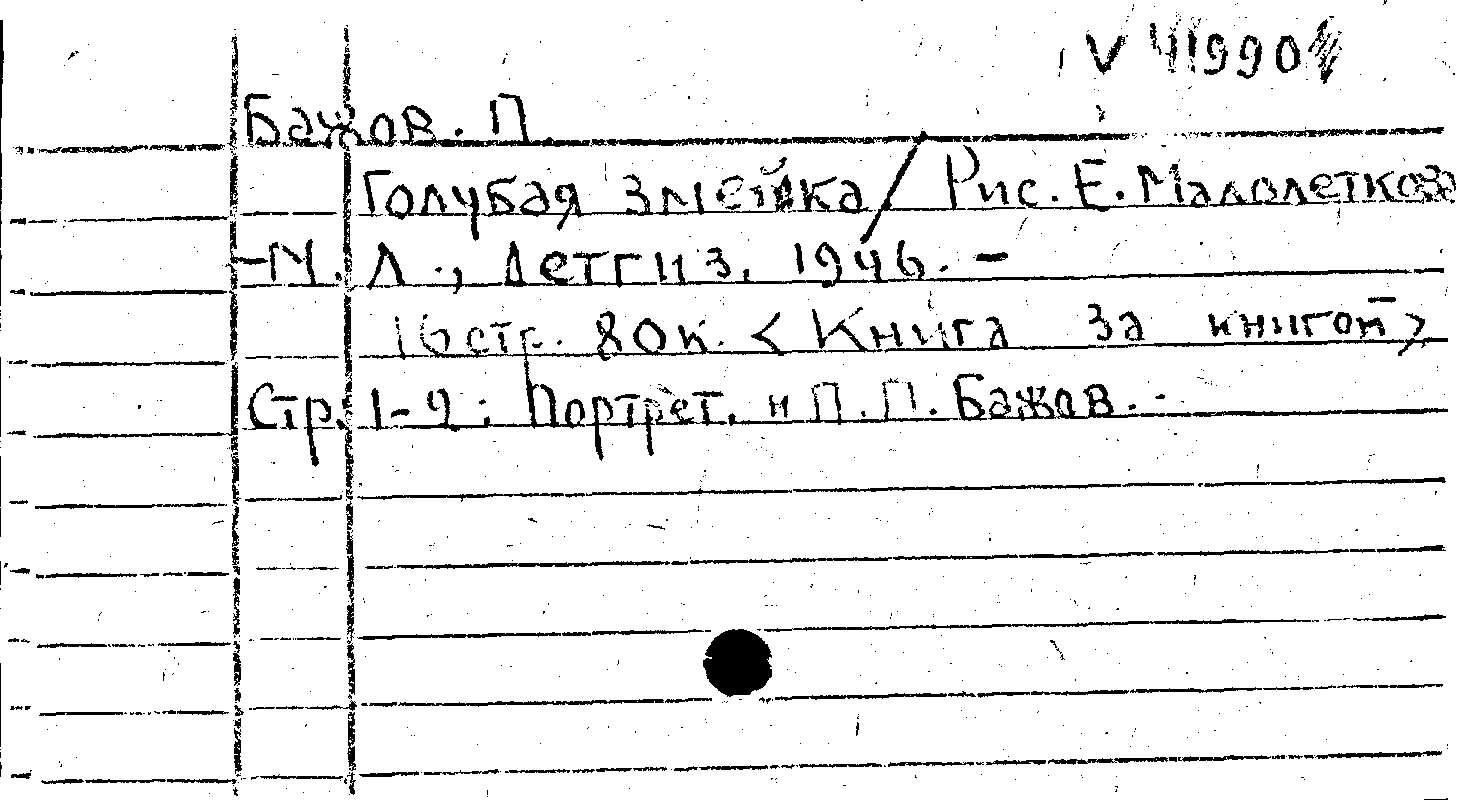 V 41990
Бажов. П.
Голубая змейка / Рис. Е. Малолеткова
-М. Л., Детгиз, 1946. -
16 стр. 80к. < Книга за книгой >
Стр. 1-2: Портрет. и П. П. Бажов. -